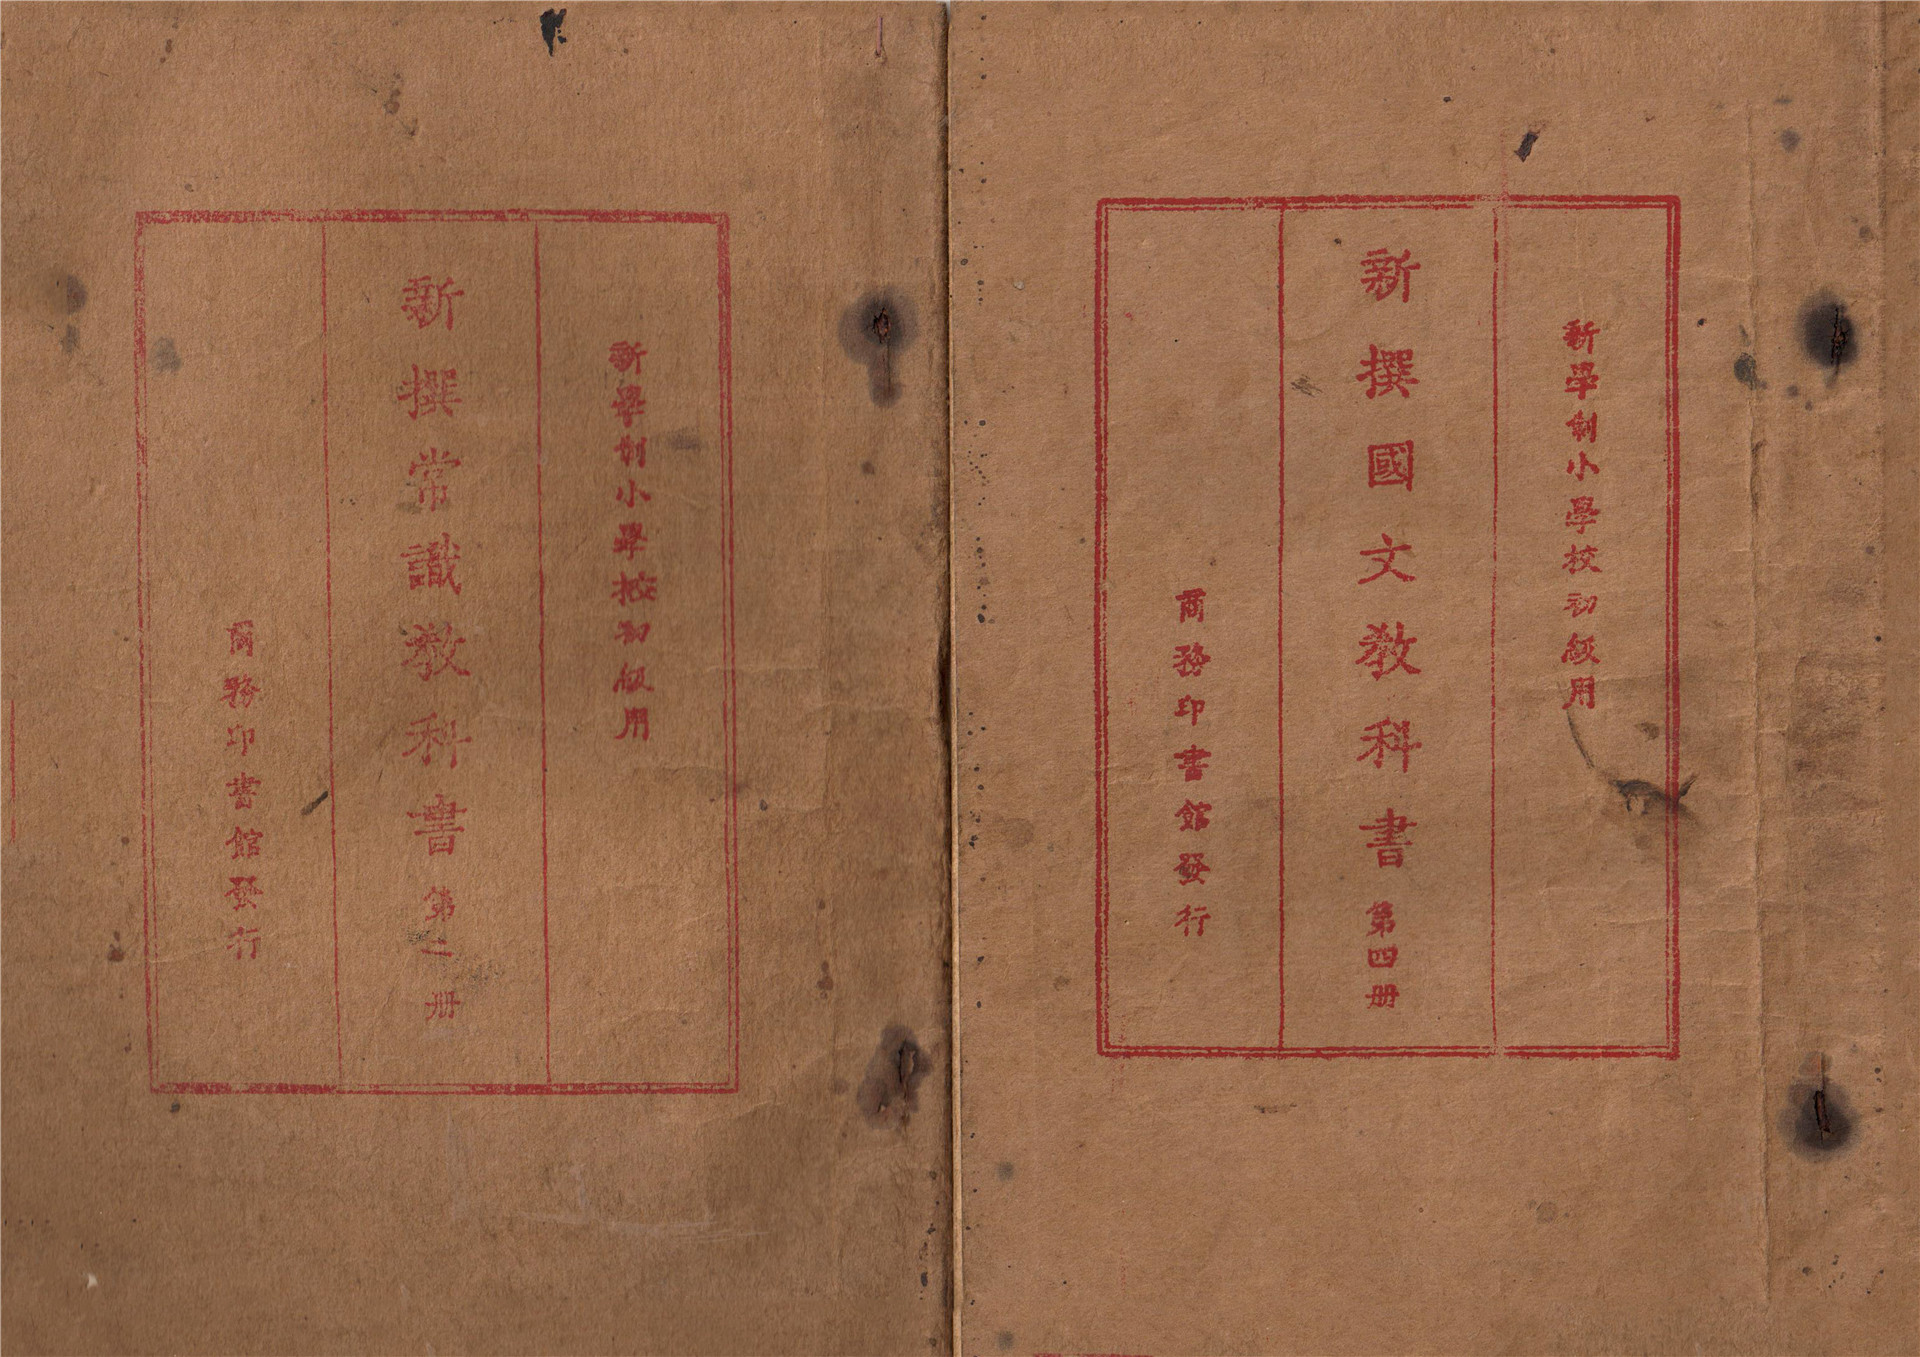 新學制小學校初級用
新撰國文教科書 第四册
商務印書館發行
新學制小學校初級用
新撰常識教科書 第二册
商務印書館發行